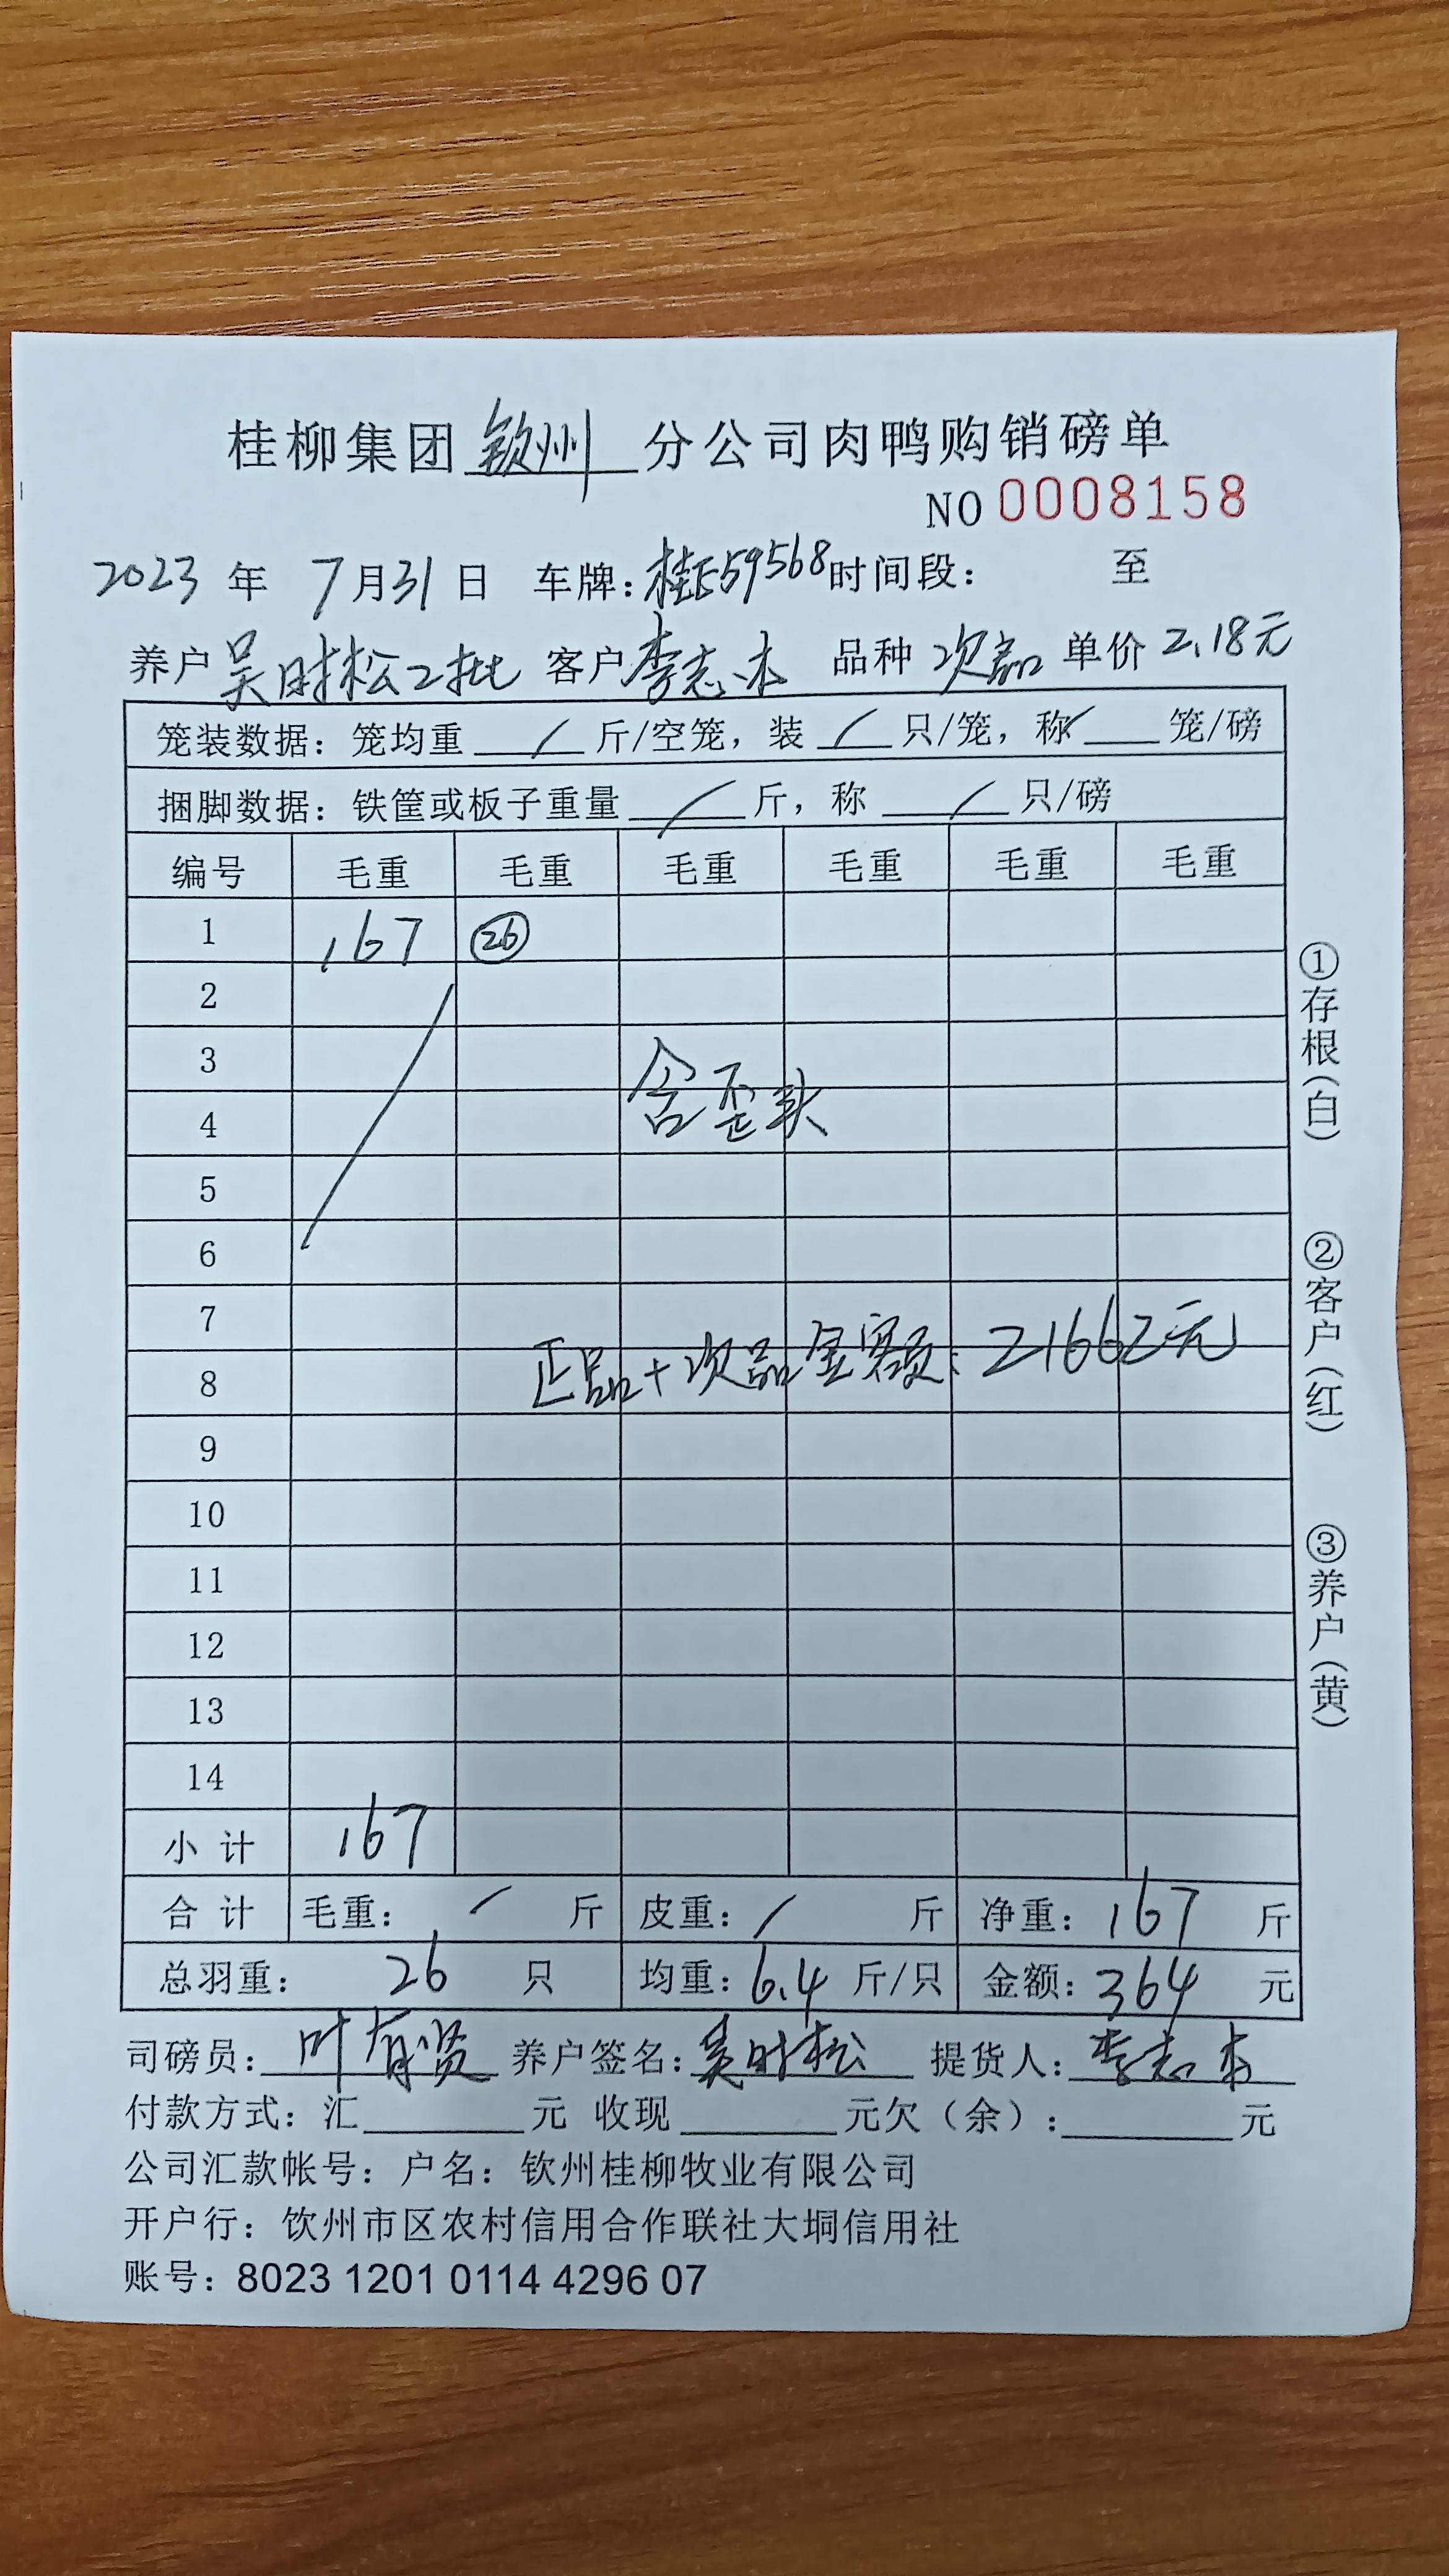 桂柳集团钦州分公司肉鸭购销磅单
NO 0008158
2023 年 7月31日 车牌:桂E59568时间段: 至
养户 吴时松2批 客户李志本 品种 次品 单价 2.18元
笼装数据: 笼均重 / 斤/空笼, 装 / 只/笼, 称 / 笼/磅
捆脚数据: 铁筐或板子重量 / 斤, 称 / 只/磅
编号 毛重 毛重 毛重 毛重 毛重 毛重
1 167 ㉖
2
3
含歪头
4
5
6
7
正品+次品金额: 21662元
8
9
10
11
12
13
14
小计 167
合计 毛重: / 斤 皮重: / 斤 净重: 167 斤
总羽重: 26 只 均重: 6.4 斤/只 金额: 364 元
司磅员: 叶有贤 养户签名: 吴时松 提货人: 李志本
付款方式: 汇 元 收现 元欠(余): 元
公司汇款帐号: 户名: 钦州桂柳牧业有限公司
开户行: 钦州市区农村信用合作联社大垌信用社
账号: 8023 1201 0114 4296 07
①存根(白)
②客户(红)
③养户(黄)